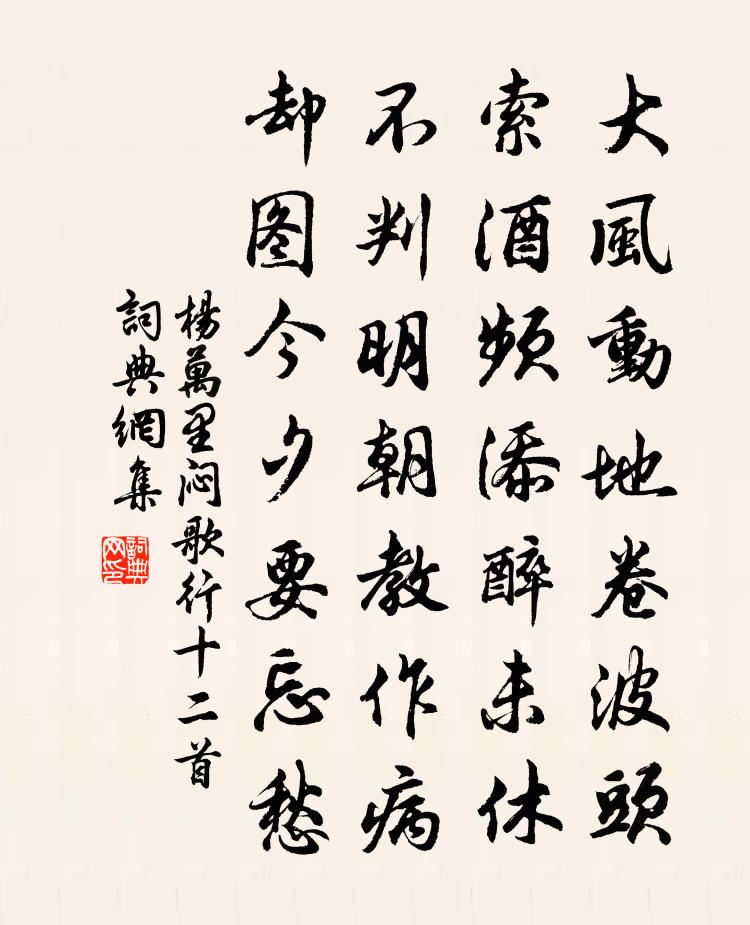 大風動地卷波頭
索酒頻添醉未休
不判明朝教作病
却图今夕要忘愁
楊萬里闷歌行十二首
詞典網集
詞典网印